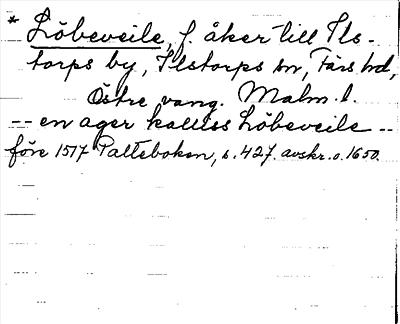 * Löbeveile, f. åker till Ils-
torps by, Ilstorps sn, Färs hd,
Östre vang. Malm. l.
-- en ager kalless Löbeveile --
före 1517 Palteboken, s. 427. avskr. o. 1650.